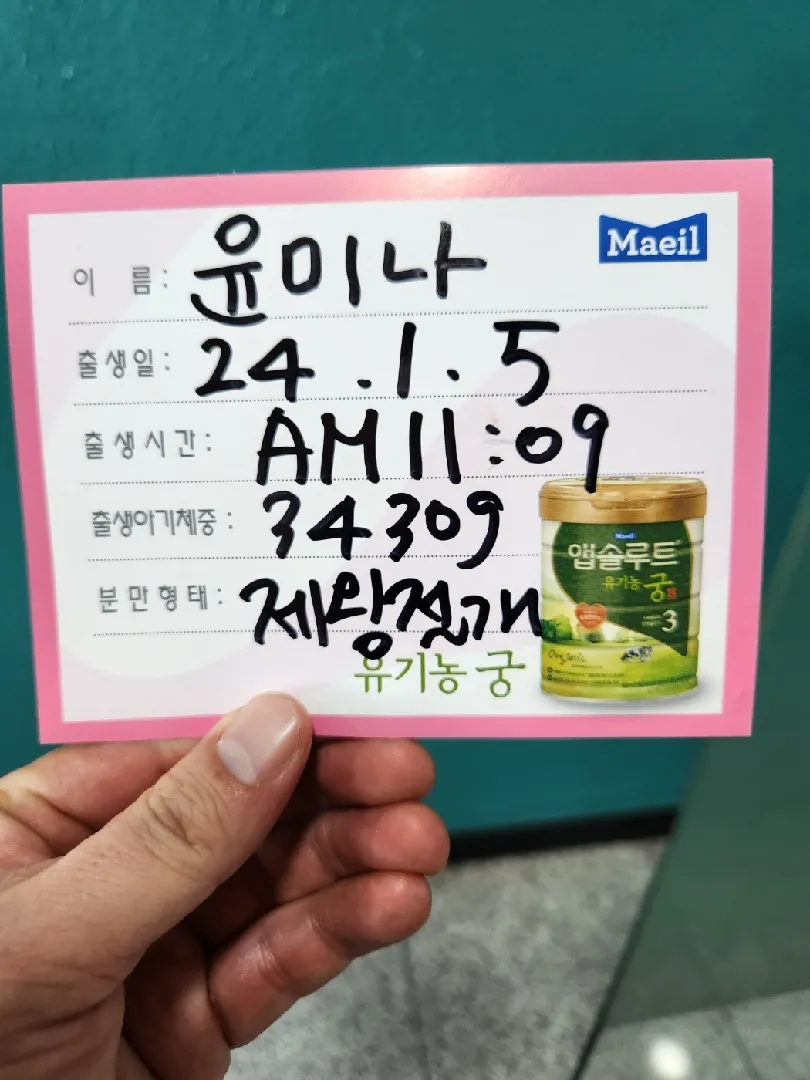 Maeil
이 름 : 윤미나
출생일 : 24.1.5
출생시간 : AM 11:09
출생아기체중 : 3430g
분만형태 : 제왕절개
유기농 궁
Maeil
앱솔루트
유기농 궁
3
Organic